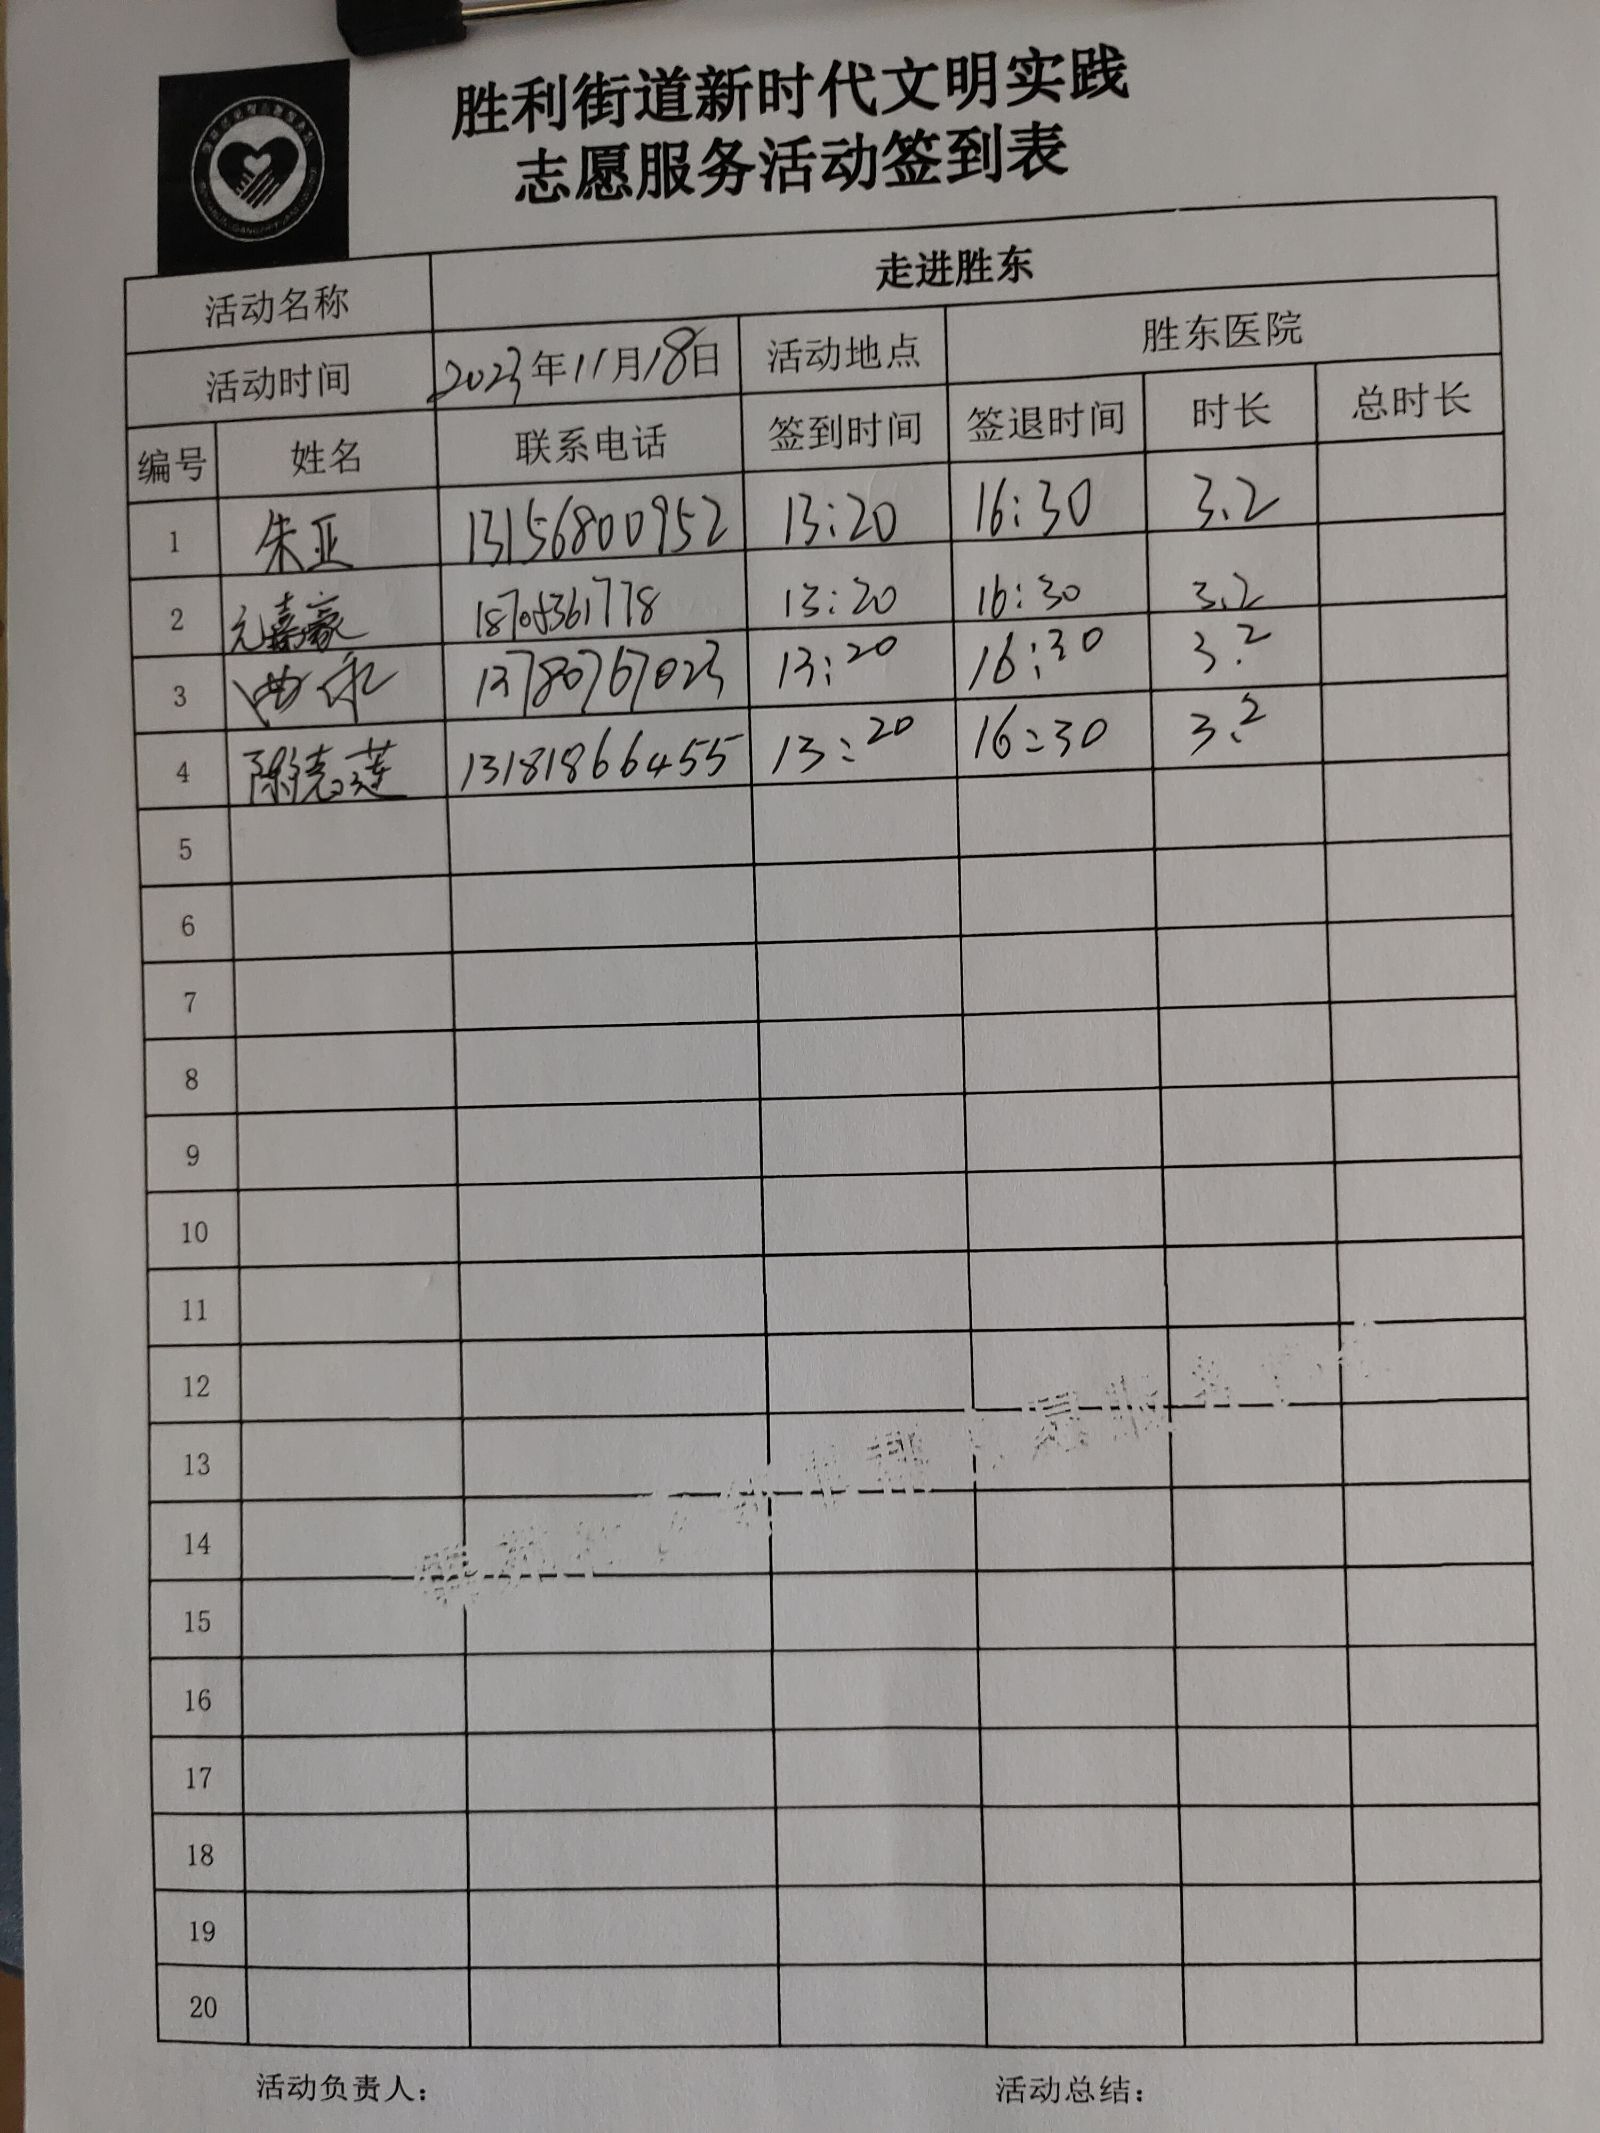 胜利街道新时代文明实践
志愿服务活动签到表
活动名称 走进胜东
活动时间 2023年11月18日 活动地点 胜东医院
编号 姓名 联系电话 签到时间 签退时间 时长 总时长
1 朱亚 13156800952 13:20 16:30 3.2
2 元嘉豪 18705361778 13:20 16:30 3.2
3 曲永 13780767023 13:20 16:30 3.2
4 陈志莲 13181866455 13:20 16:30 3.2
5
6
7
8
9
10
11
12
13
14
15
16
17
18
19
20
活动负责人： 活动总结：